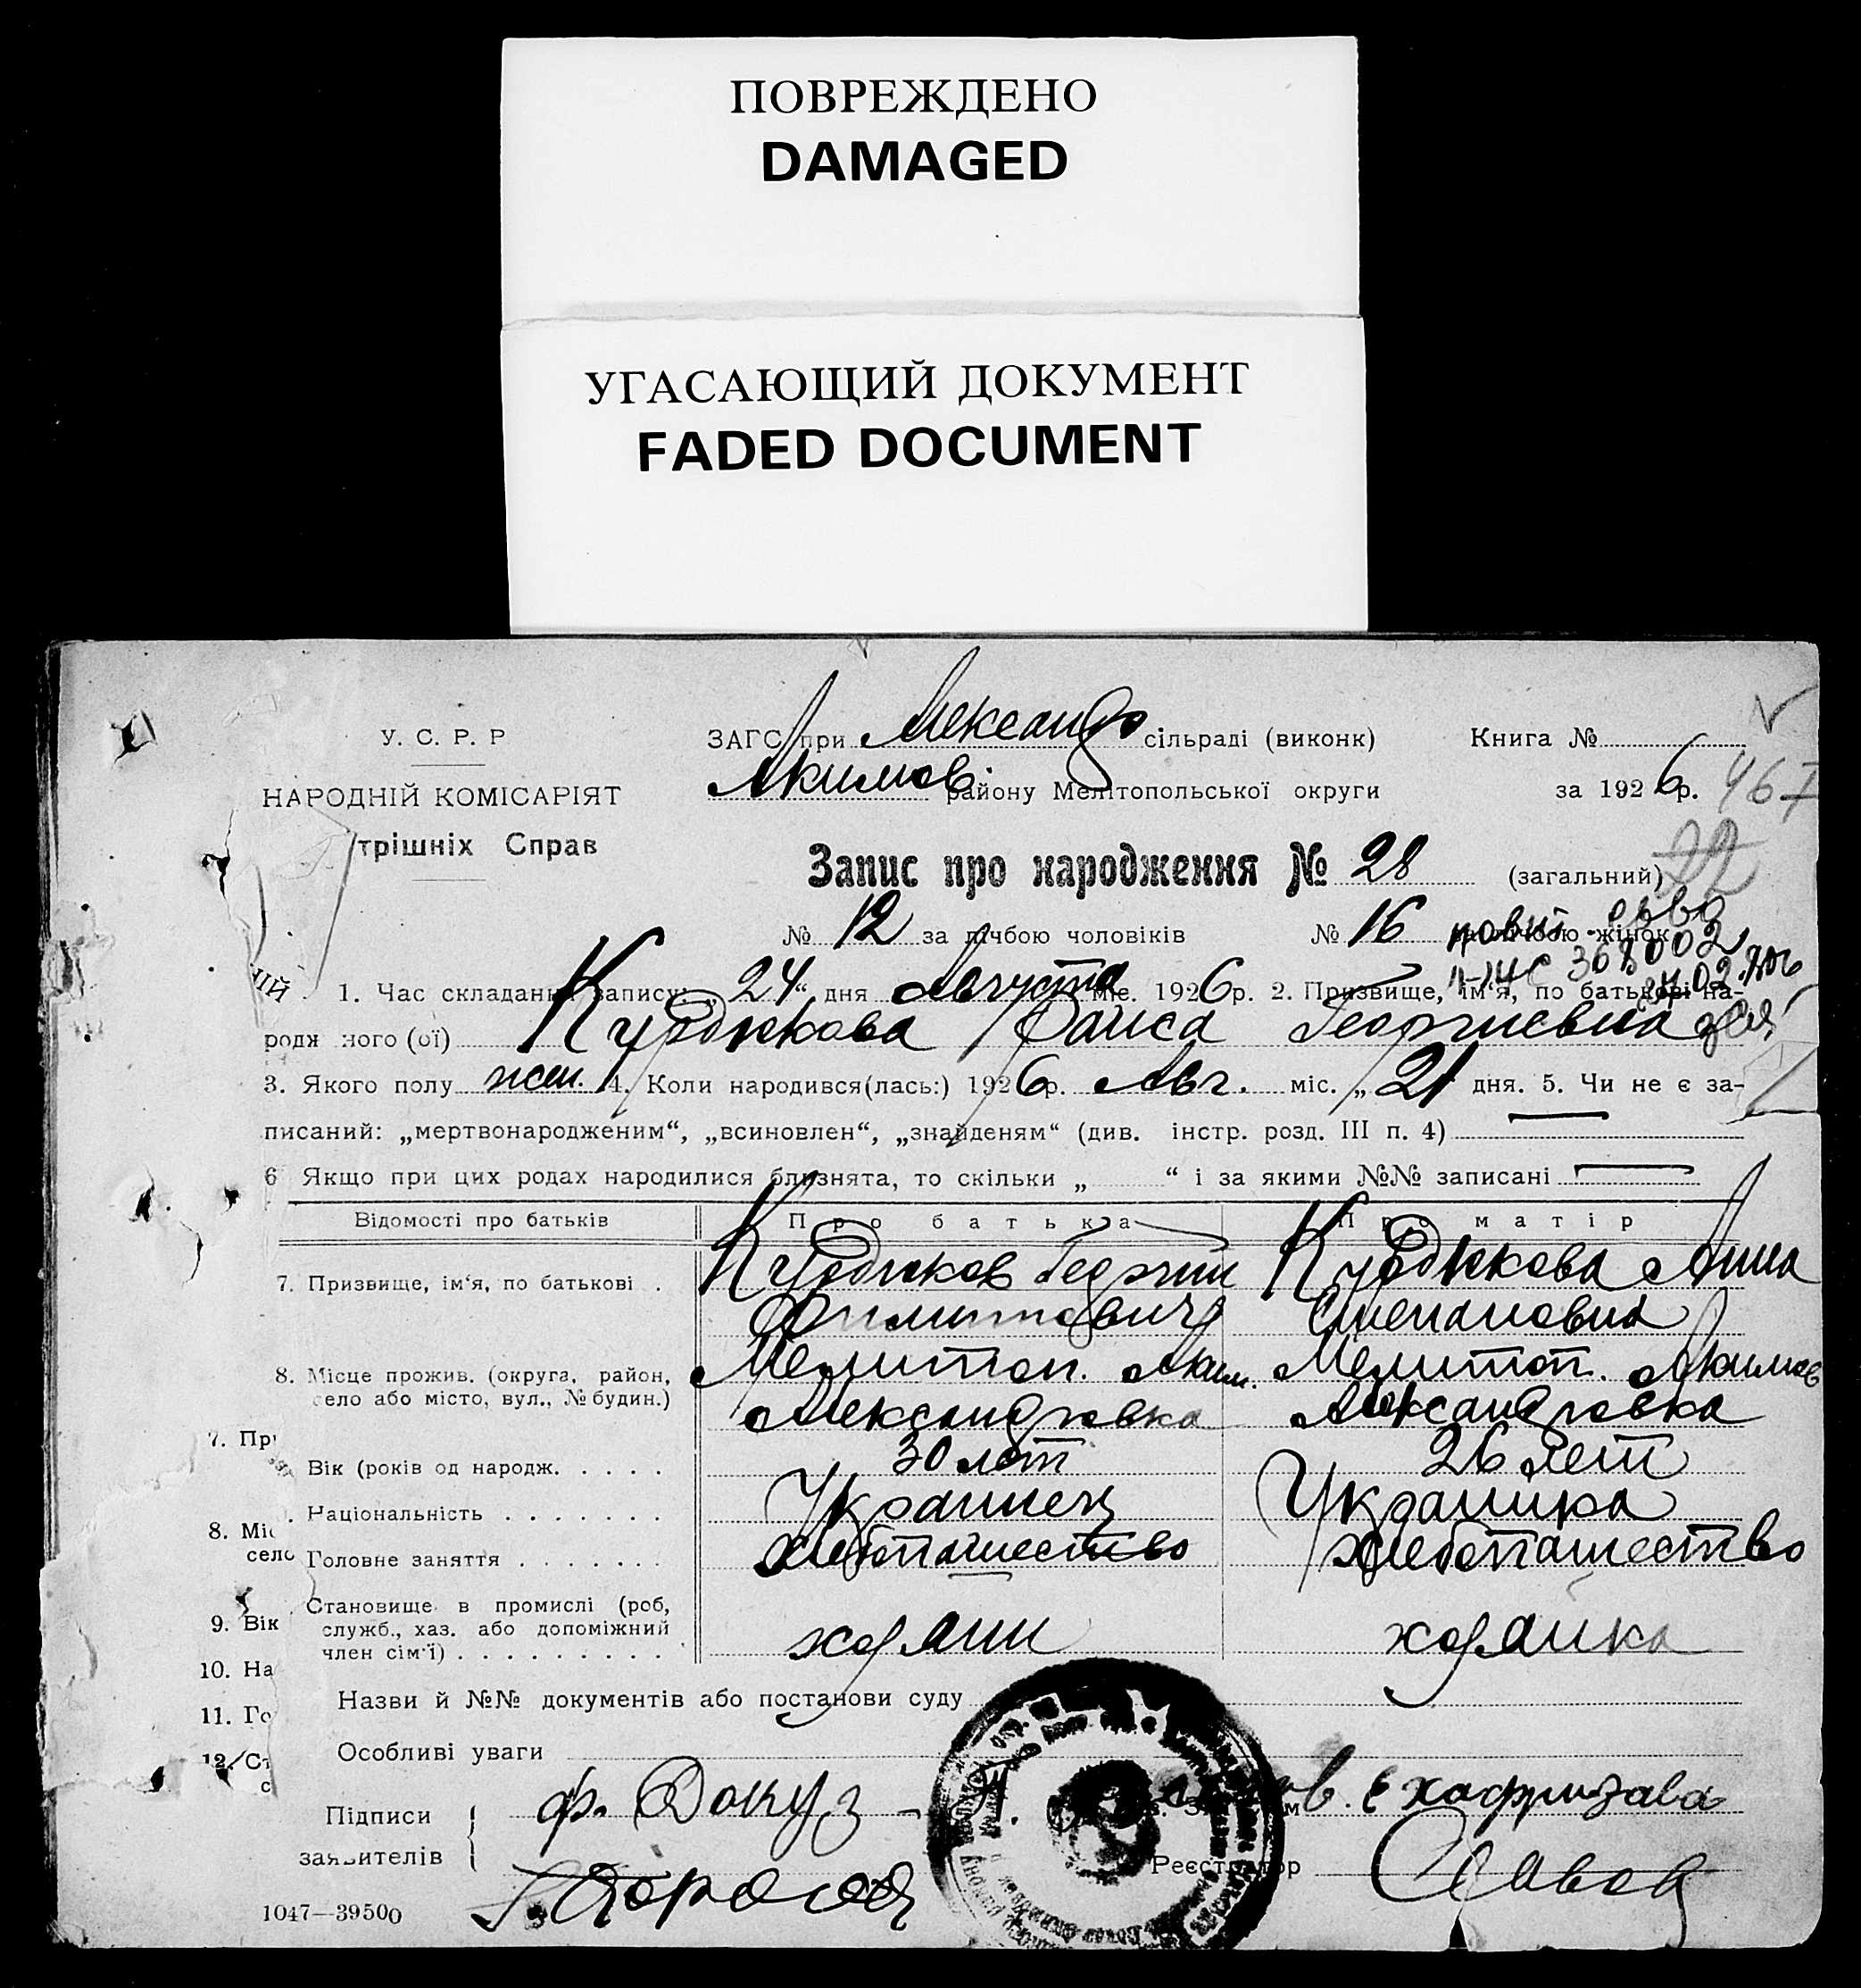 ПОВРЕЖДЕНО
DAMAGED
УГАСАЮЩИЙ ДОКУМЕНТ
FADED DOCUMENT
У. С. Р. Р
ЗАГС при Александр сільраді (виконк) Книга №
НАРОДНІЙ КОМІСАРІЯТ
Акимов. району Мелітопольської округи за 1926 р. 467
трішніх Справ
Запис про народження № 28 (загальний) 72
№ 12 за лічбою чоловіків № 16 за лічбою жінок
1. Час складання запису: „24“ дня Августа міс. 1926 р. 2. Призвище, ім'я, по батькові на-
родж ного (ої) Курдюкова Раиса Георгиевна
3. Якого полу жен. 4. Коли народився(лась:) 1926 р. Авг. міс. „21 дня. 5. Чи не є за-
писаний: „мертвонародженим“, „всиновлен“, „знайденям“ (див. інстр. розд. III п. 4)
6 Якщо при цих родах народилися близнята, то скільки „ “ і за якими №№ записані
Відомості про батьків Про батька Про матір
7. Призвище, ім'я, по батькові . Курдюков Георгий Курдюкова Анна
Степановна
8. Місце прожив. (округа, район, Мелитоп. Аким. Мелитоп. Акимов
село або місто, вул., № будин.) Александровка Александровка
7. Пр
Вік (років од народж. . . . . 30 лет 26 лет
Національність . . . . . . . Украинец Украинка
8. Міс
село
Головне заняття . . . . . . . Хлебопашество Хлебопашество
Становище в промислі (роб,
9. Вік
служб., хаз. або допоміжний хозяин хозяйка
член сім'ї) . . . . . . . . .
10. На
Назви й №№ документів або постанови суду
11. Го
Особливі уваги
12. Ст
с
Підписи
заявителів
Реєстратор
1047—39500